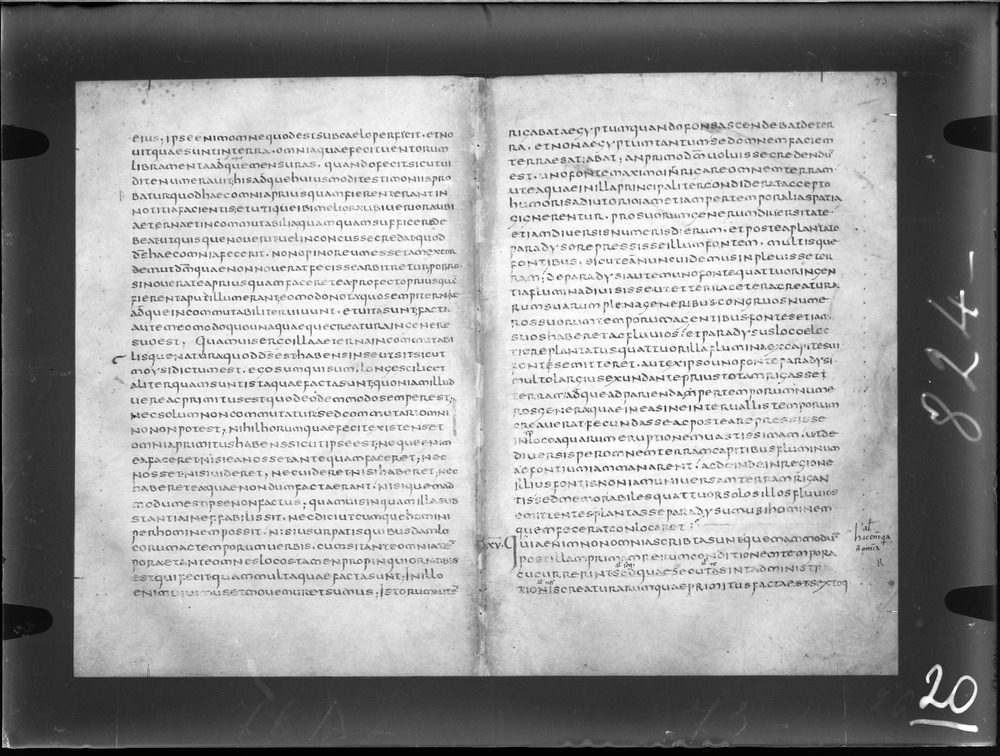 eius; ipse enim omne quod est sub caelo perficit · et no
uit quae sunt in terra · omnia quae fecit uentorum
libramenta adque mensuras · quando fecit sicut ui
dit enumerauit his adque huiusmodi testimoniis pro
batur quod haec omnia priusquam fierent erant in
notitia facientis; et utique ibi meliora ubi ueriora ubi
aeterna et incommutabilia quamquam sufficere de
beat ut quisque nouerit uel inconcusse credat quod
ds haec omnia fecerit · non opinor eum esse tam excor
dem ut dm quae non nouerat fecisse arbitretur; porro
si nouerat ea priusquam faceret ea profecto priusquā
fierent aput illum erant eo modo nota quo sempiternae
adque incommutabiliter uiuunt · et uita sunt; facta
autem eo modo quo unaquaeque creatura in genere
suo est; Quamuis ergo illa aeterna incommutabi
lisque natura quod ds est habens in se ut sit sicut
moysi dictum est · ego sum qui sum; longe scilicet
aliter quam sunt ista quae facta sunt; quoniam illud
uere ac primitus est quod eodem modo semper est;
nec solum non commutatur sed commutari omni
no non potest; nihil horum quae fecit existens et
omnia primitus habens sicut ipse est; neque enim
ea faceret nisi ea nosset antequam faceret; nec
nosset nisi uideret; nec uideret nisi haberet; nec
haberet ea quae nondum facta erant · nisi quemad
modum est ipse non factus; quamuis inquam illa sub
stantia ineffabilis sit · nec dici utcumque homini
per hominem possit · nisi usurpatis quibusdam lo
corum ac temporum uerbis · cum sit ante omnia tē
pora et ante omnes locos tamen propinquior nobis
est qui fecit quam multa quae facta sunt; in illo
enim uiuimus et mouemur et sumus; istorum autē
73
rigabat aegyptum quando fons ascendebat de ter
ra · et non aegyptum tantum sed omnem faciem
terrae satiabat; an primo dm uoluisse credendū
est · uno fonte maximo inrigare omnem terram
ut ea quae in illa principaliter condiderat accepto
humoris adiutorio iam etiam per temporalia spatia
gignerentur · pro suorum generum diuersitate ·
etiam diuersis numeris dierum · et postea plantato
paradyso repressisse illum fontem · multisque
fontibus · sicut ea nunc uidemus impleuisse ter
ram; de paradysi autem uno fonte quattuor ingen
tia flumina diuisisse ut et terra cetera creatura
rum suarum plena generibus congruos nume
ros suorum temporum agentibus fontes etiam
suos haberet ac fluuios; et paradysus loco elec
tiore plantatus quattuor illa flumina ex capite sui
fontes emitteret · aut ex ipso uno fonte paradysi
multo largius exundante prius totam rigasset
terram adque ad parienda per temporum nume
ros genera quae in ea sine interuallis temporum
creauerat fecundasse ac postea repressisse
in loco aquarum eruptionem uastissimam · ut de
diuersis per omnem terram capitibus fluminum
ac fontium iam manarent; ac deinde in regione
illius fontis non iam uniuersam terram rigan
tis sed memorabiles quattuor solos illos fluuios
emittentes plantasse paradysum ubi hominem
quem fecerat conlocaret :
xv · Quia enim non omnia scripta sunt quemammodum
post illam primam rerum conditionem tempora
cucurrerint sed quae secuta sint administra
tionis creaturarum quae primitus factae sextoq
824 -
20